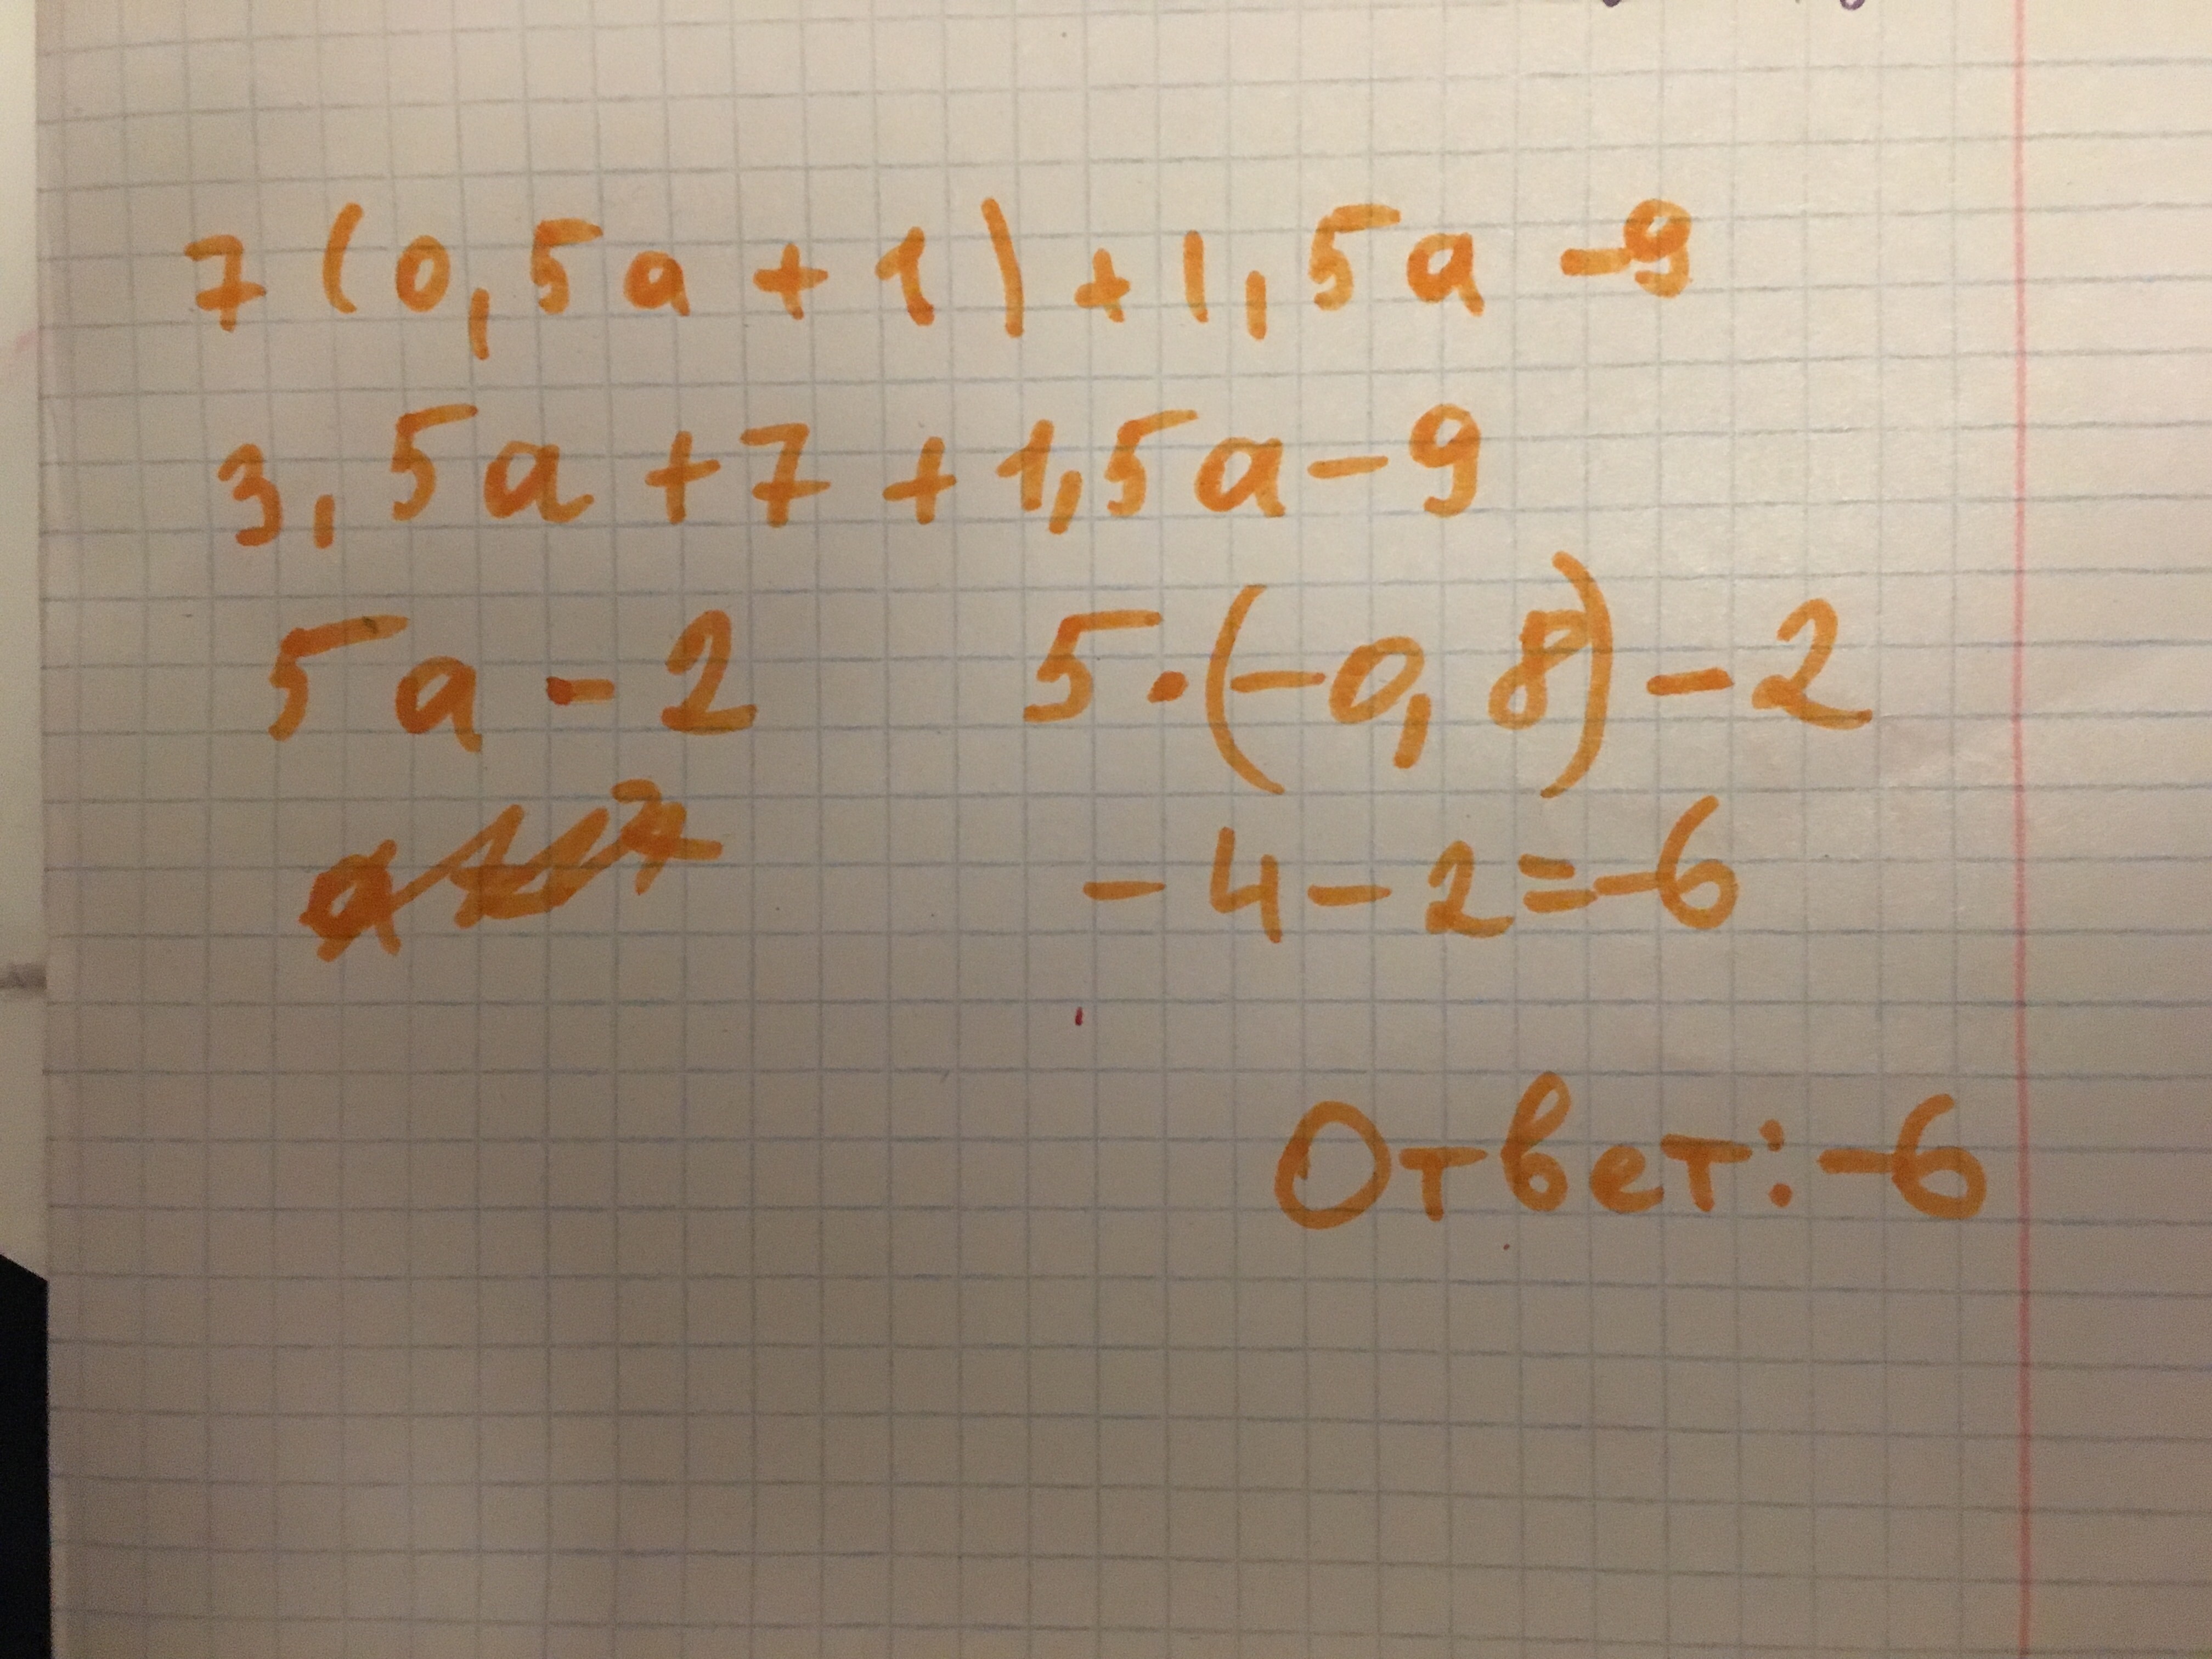 7(0,5a+1)+1,5a-9
3,5a+7+1,5a-9
5a-2
5·(-0,8)-2
-4-2=-6
Ответ:-6